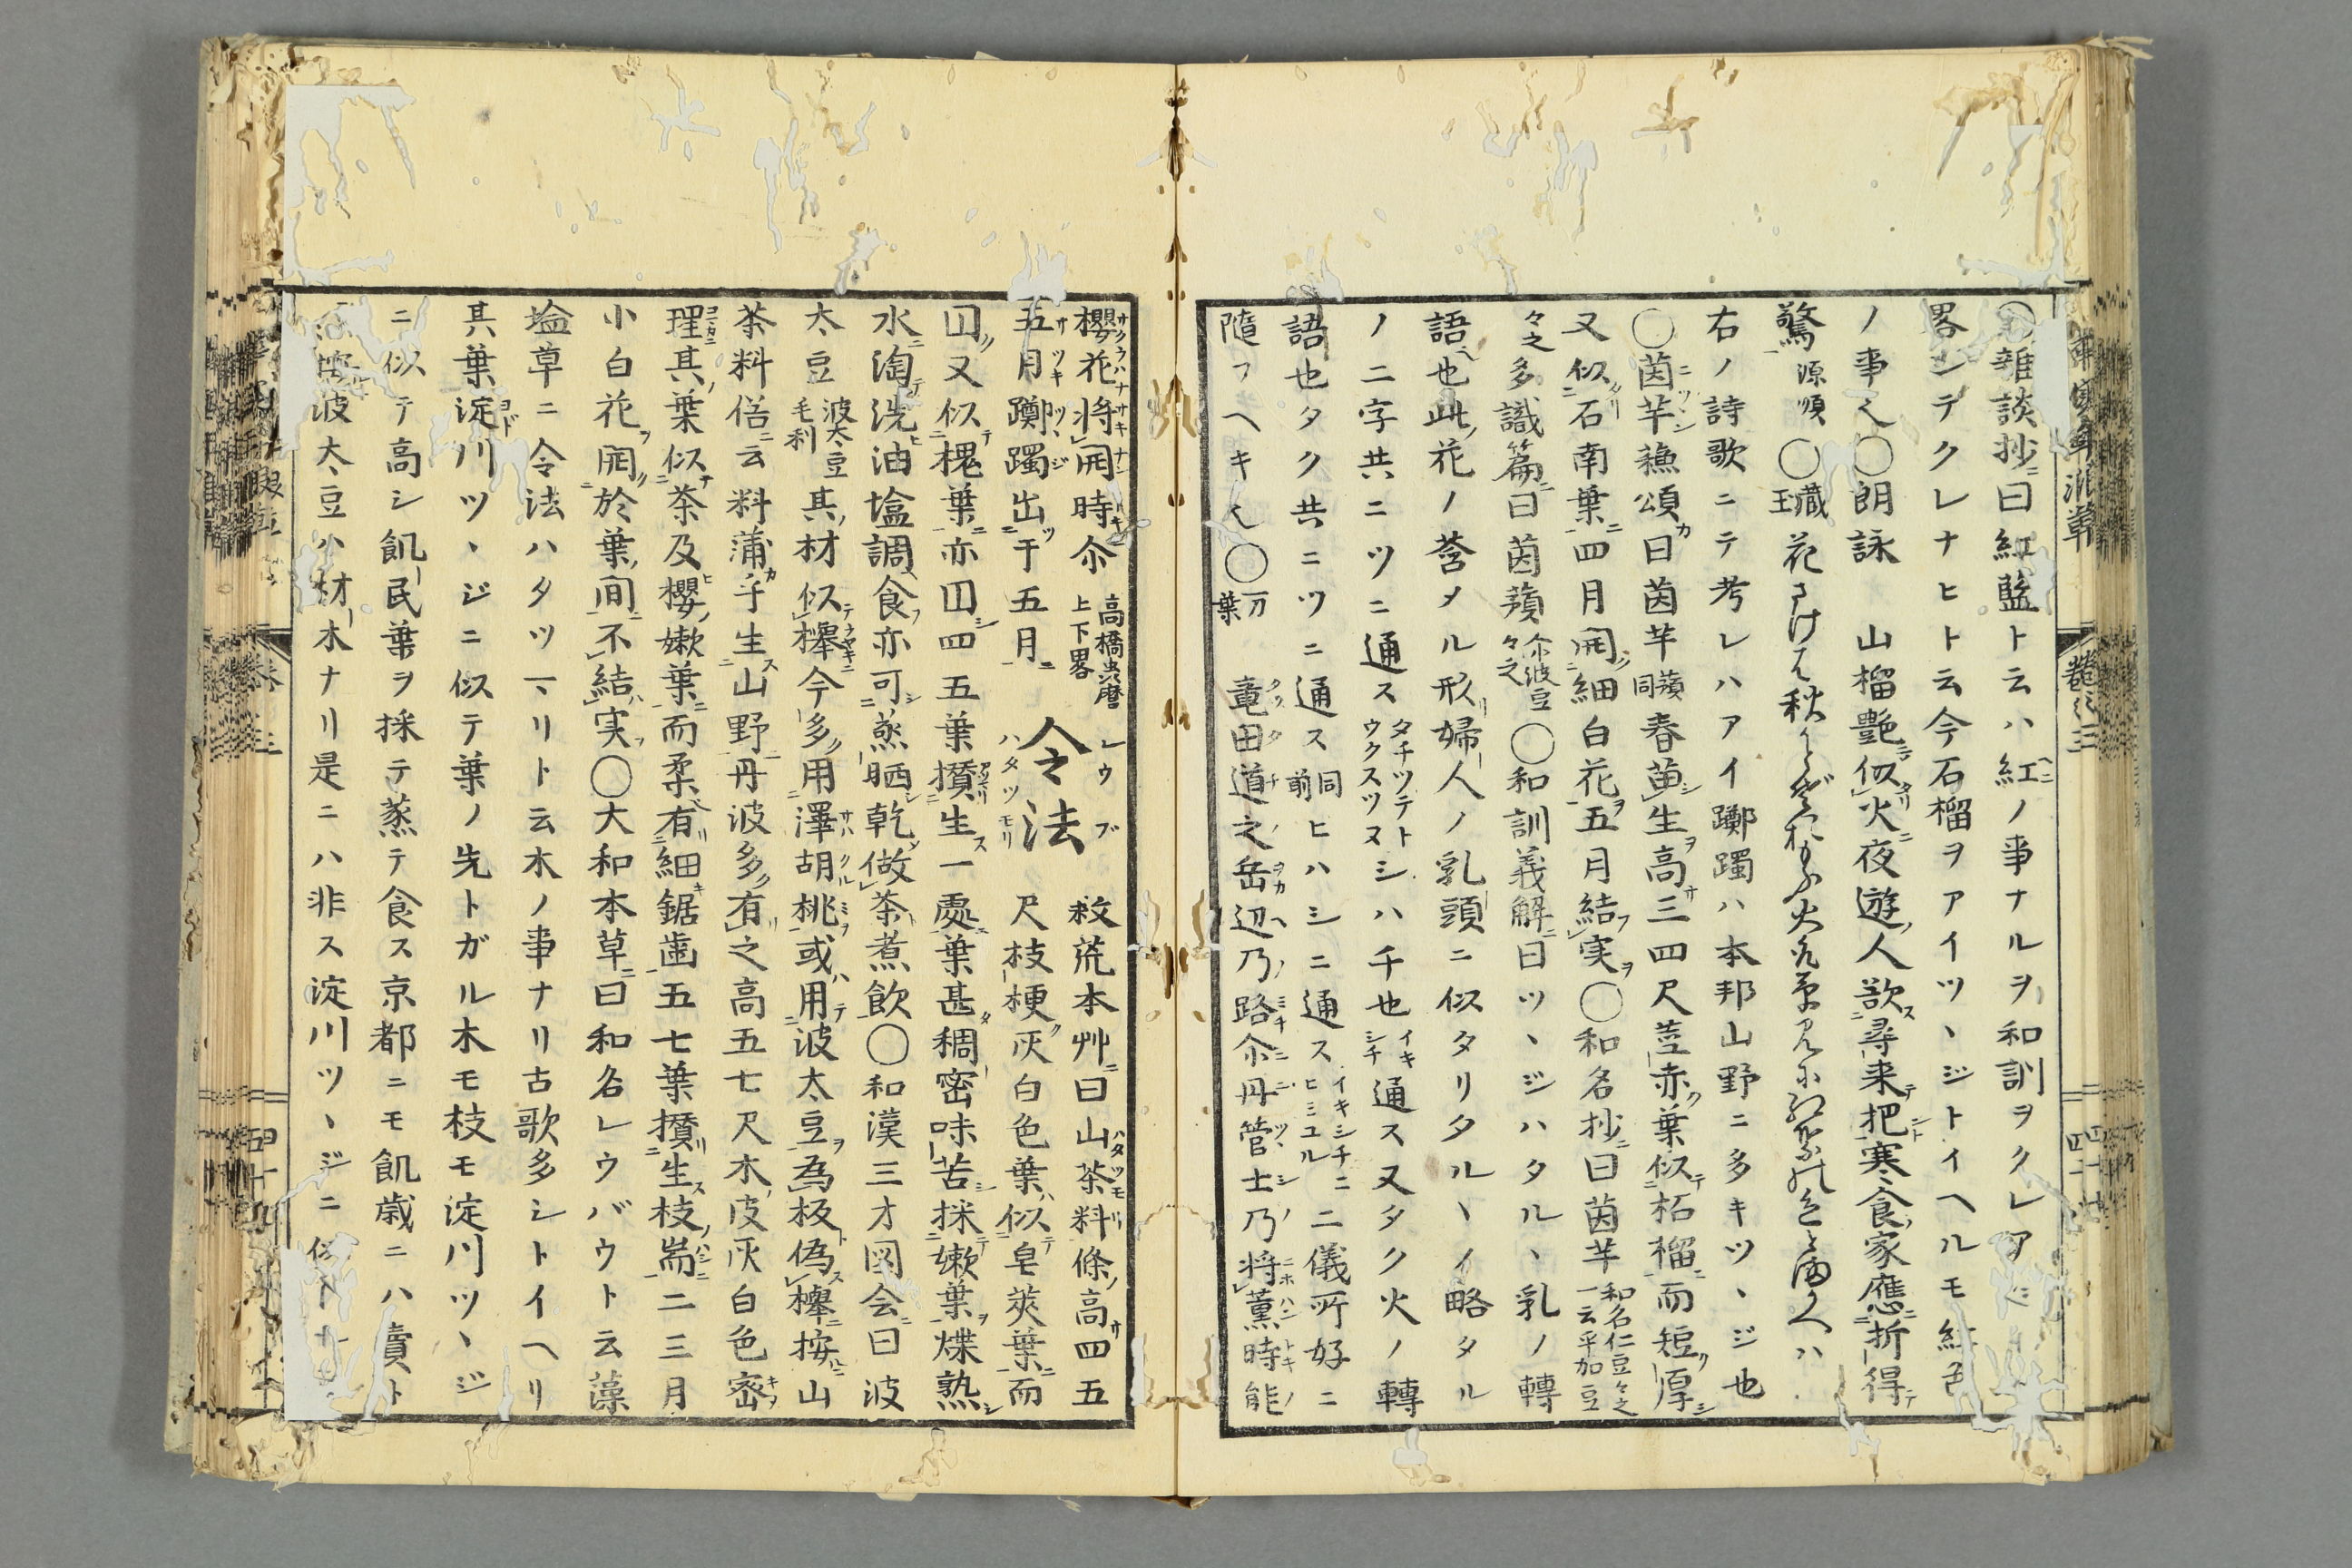 ○雜談抄ニ曰紅藍ト云ハ紅ノ事ナルヲ和訓ヲクレア
畧シテクレナヒト云今石榴ヲアイツヽジトイヘルモ紅色
ノ事也○朗詠　山榴艶似火夜遊人欲尋来把寒食家應折得
驚 源順 ○藏玉 花さけは秋
右ノ詩歌ニテ考レハアイ躑躅ハ本邦山野ニ多キツヽジ也
○茵芋蘓頌曰茵芋 蕷同 春苗生高三四尺莖赤葉似柘榴而短厚
又似石南葉四月開細白花五月結実○和名抄ニ曰茵芋 和名仁豆々之 一云乎加豆
々之 多識篇ニ曰茵蕷 尒波豆々之 ○和訓義解ニ曰ツヽジハタルヽ乳ノ轉
語也此花ノ莟メル形婦人ノ乳頭ニ似タリタルヽイ略タル
ノ二字共ニツニ通ス タチツテト ウクスツヌ シハ千也 イキシチ 通ス又タク火ノ轉
語也タク共ニツニ通ス 同前 ヒハシニ通ス イキシチニ ヒミユル 二儀所好ニ
隨フヘキ也○万葉　竜田道之岳辺乃路尒丹管士乃将薫時能
櫻花将開時尒 高橋虫麿 上下畧 令法 レウブ ハタツモリ 救荒本艸ニ曰山茶料條高四五
五月躑躅出于五月　尺枝梗灰白色葉似皂莢葉而
囬又似槐葉亦囬四五葉攅生一處葉甚稠密味苦採嫩葉煠熟
水淘洗油塩調食亦可蒸晒乾做茶煮飲○和漢三才図会ニ曰波
太豆 波太豆毛利 其材似檞今多用澤胡桃或用波太豆為板偽檞按山
茶料俗云料蒲乎生山野丹波多有之高五七尺木皮灰白色密
理其葉似茶及櫻嫩葉而柔有細鋸歯五七葉攅生枝耑二三月
小白花開於葉間不結実○大和本草ニ曰和名レウバウト云藻
塩草ニ令法ハタツモリト云木ノ事ナリ古歌多シトイヘリ
其葉淀川ツヽジニ似テ葉ノ先トガル木モ枝モ淀川ツヽジ
ニ似テ高シ飢民葉ヲ採テ蒸テ食ス京都ニモ飢歳ニハ賣ト
按波太豆ハ材木ナリ是ニハ非ス淀川ツヽジニ
巻之三
四十